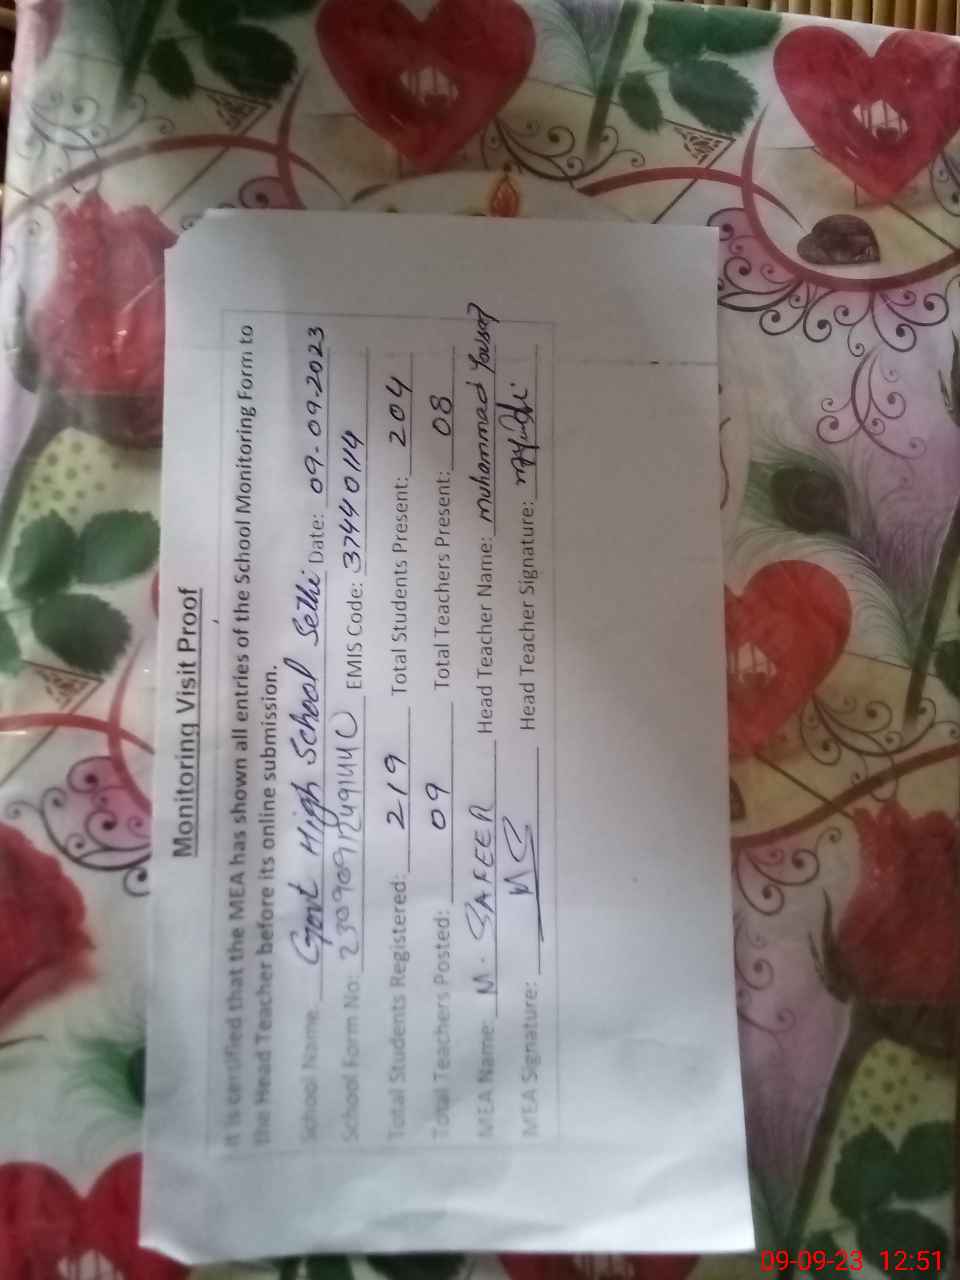 Monitoring Visit Proof
It is certified that the MEA has shown all entries of the School Monitoring Form to
the Head Teacher before its online submission.
School Name: Govt High School Sethi Date: 09-09-2023
School Form No: EMIS Code: 37440114
Total Students Registered: 219 Total Students Present: 204
Total Teachers Posted: 09 Total Teachers Present: 08
MEA Name: M. SAFEER Head Teacher Name: Muhammad Yousaf
MEA Signature: Head Teacher Signature:
09-09-23 12:51